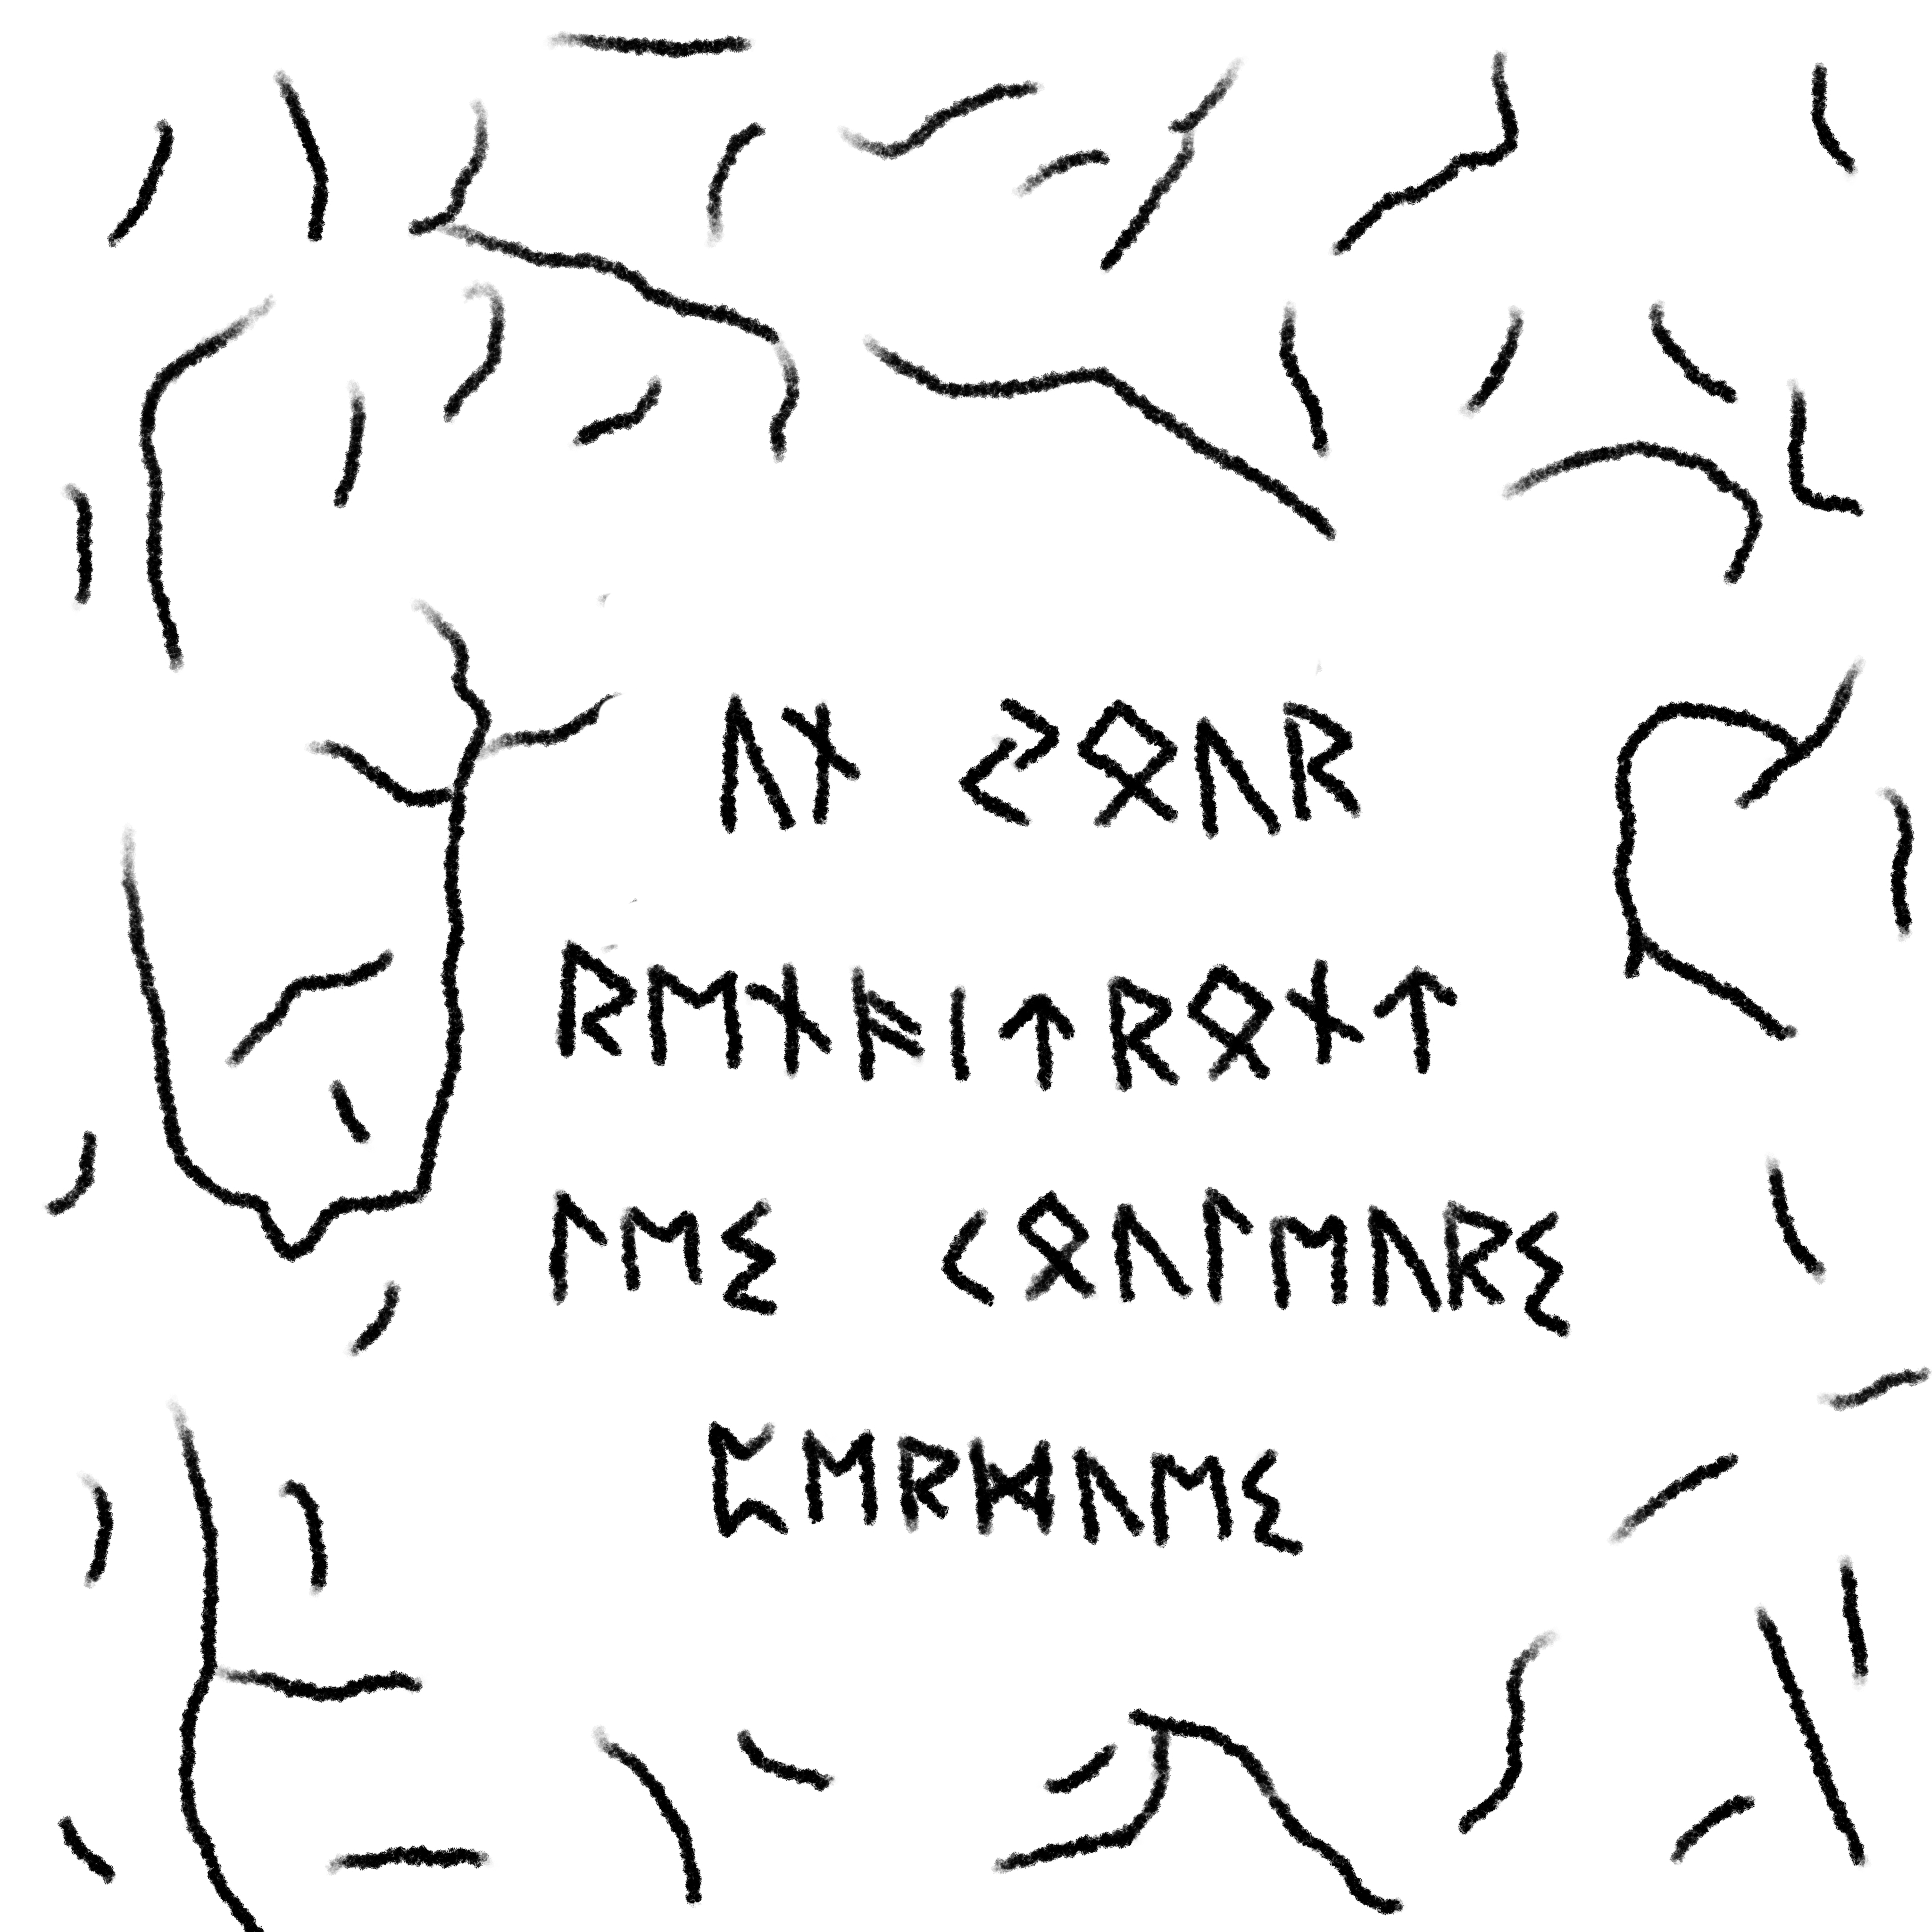 ᚢᚾ ᛃᛟᚢᚱ
ᚱᛖᚾᚨᛁᛏᚱᛟᚾᛏ
ᛚᛖᛊ ᚲᛟᚢᛚᛖᚢᚱᛊ
ᛈᛖᚱᛞᚢᛖᛊ